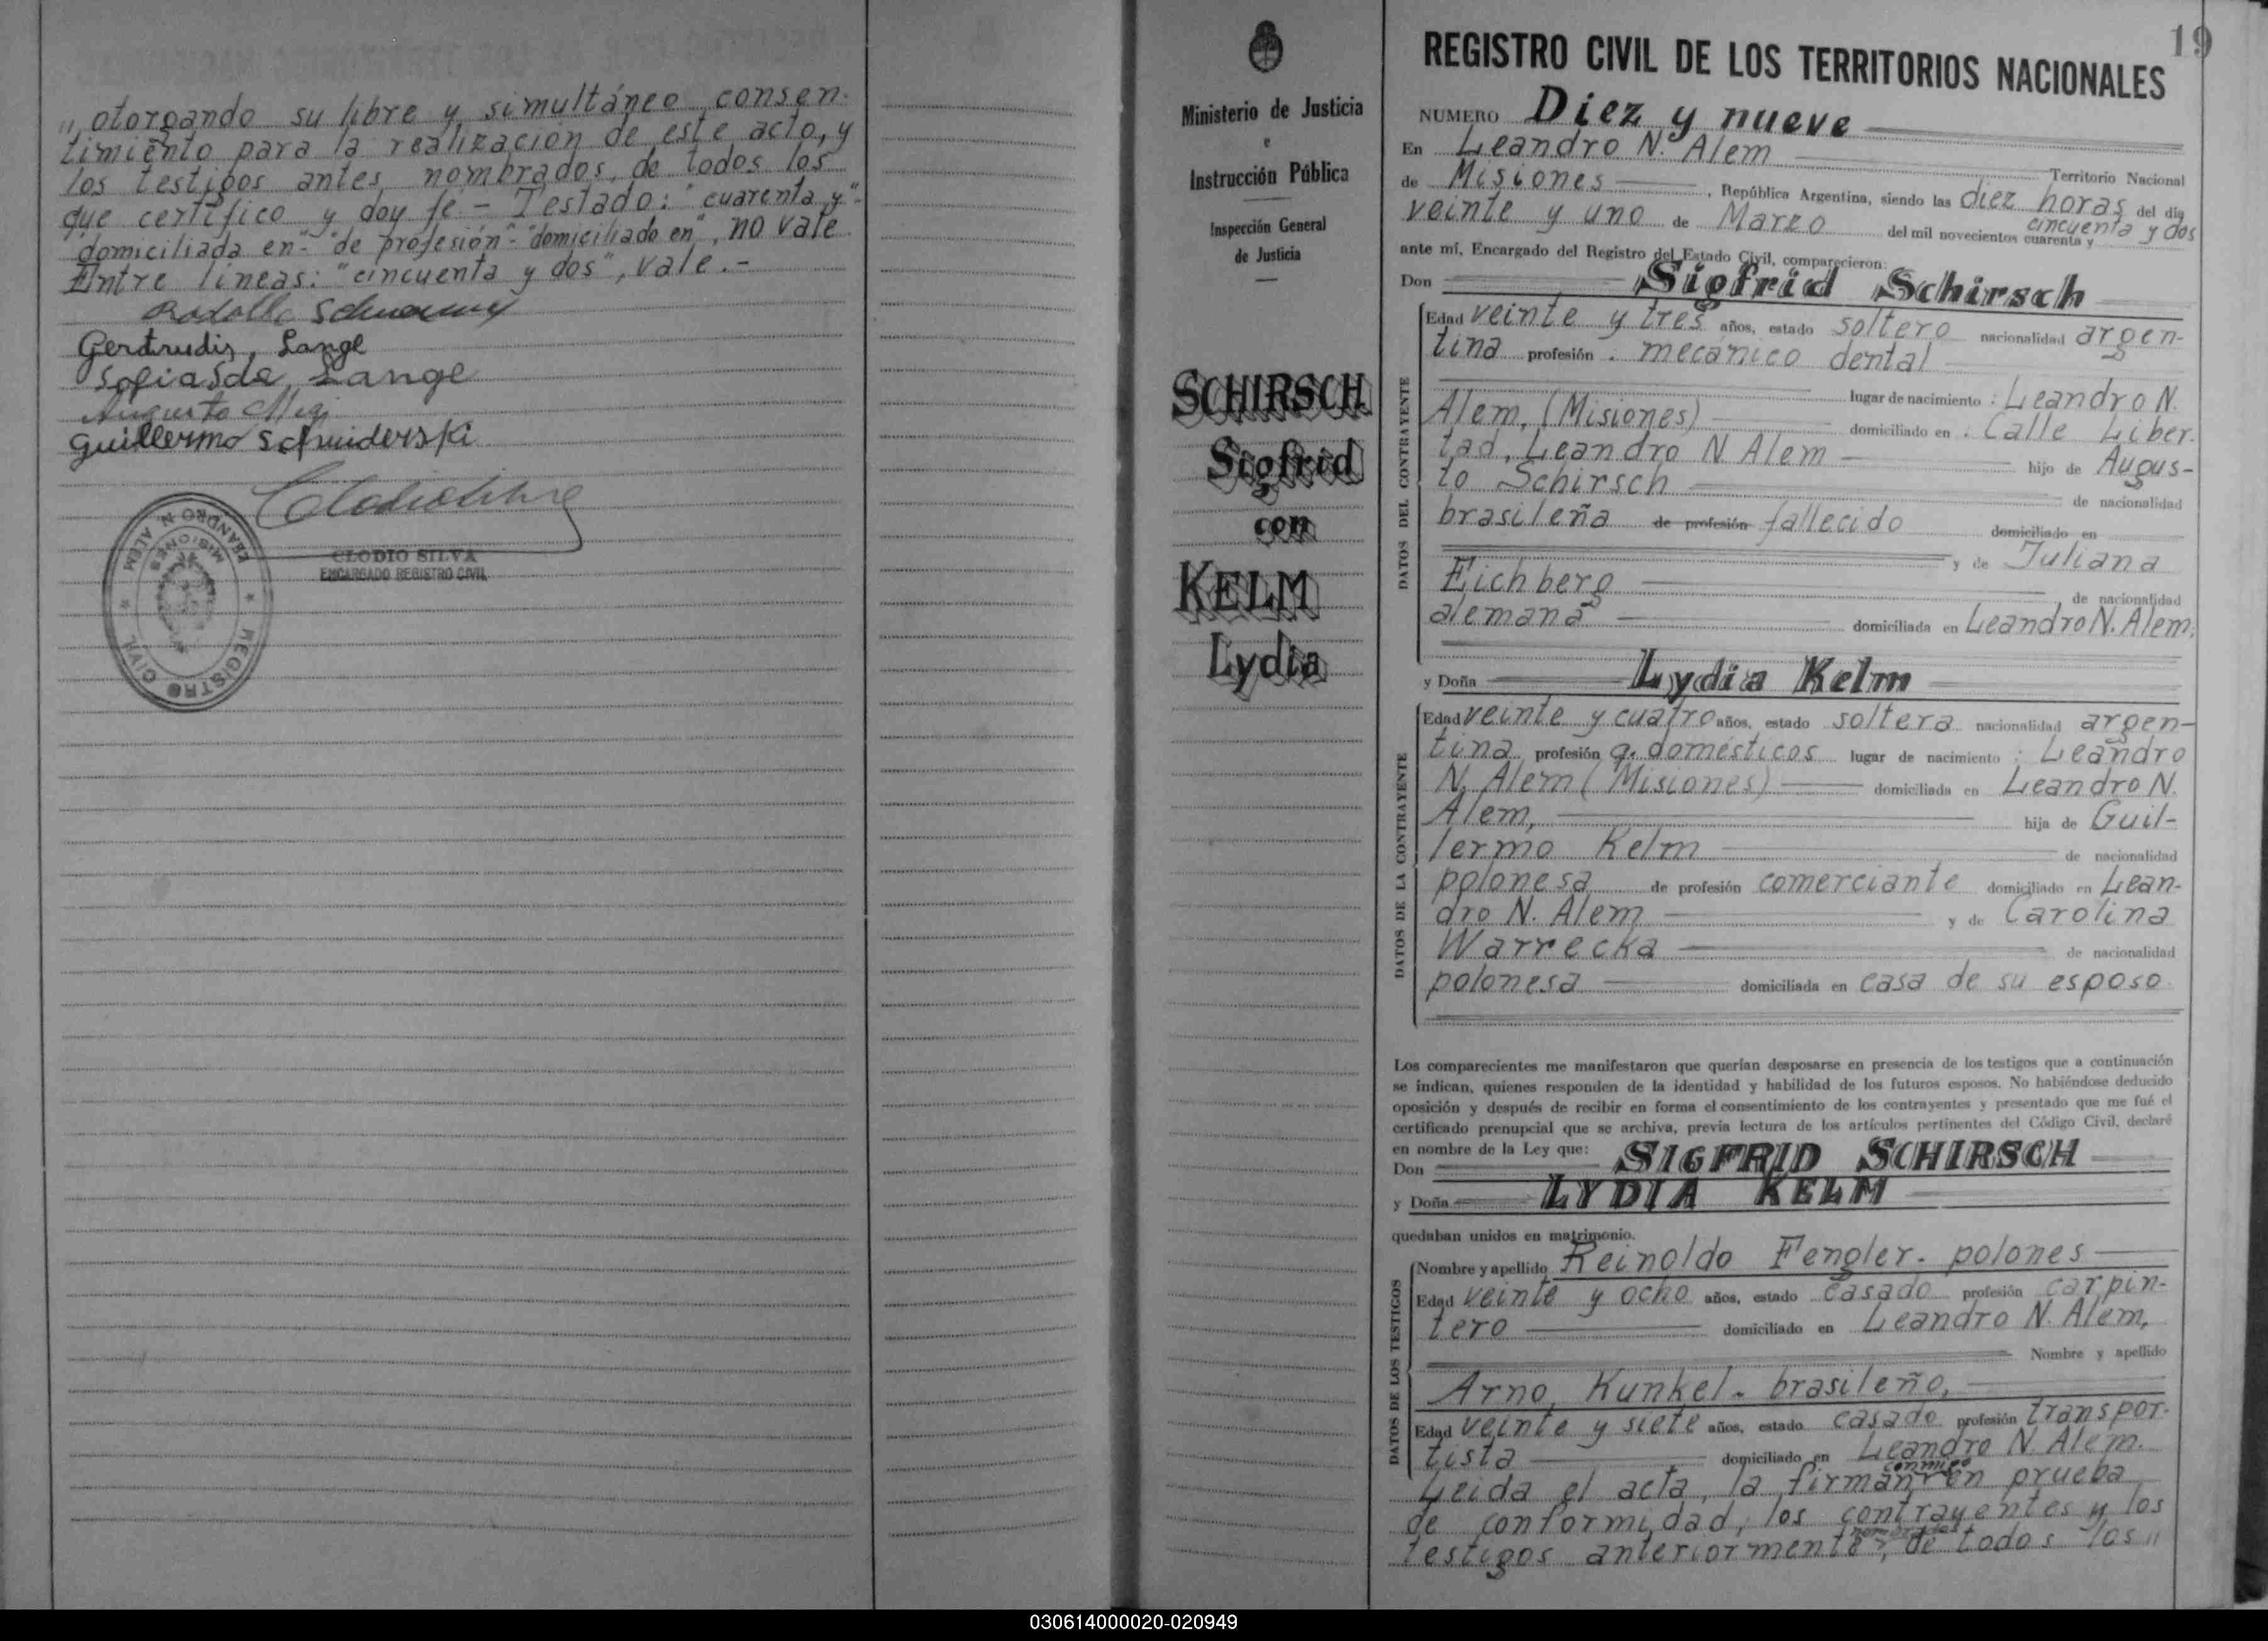 „ otorgando su libre y simultáneo consen-
timiento para la realización de este acto, y
los testigos antes nombrados, de todos los
que certifico y doy fé.- Testado: "cuarenta y"-
"domiciliada en"- "de profesión"- "domiciliado en", no vale.
Entre líneas: "cincuenta y dos", vale.-
Rodolfo
Gertrudis Lange
Sofia S de Lange
Augusto
Guillermo Schmiderski
CLODIO SILVA
ENCARGADO REGISTRO CIVIL
LEANDRO N. ALEM
MISIONES
* REGISTRO CIVIL *
Ministerio de Justicia
e
Instrucción Pública
Inspección General
de Justicia
SCHIRSCH
Sigfrid
con
KELM
Lydia
19
REGISTRO CIVIL DE LOS TERRITORIOS NACIONALES
NUMERO Diez y nueve
En Leandro N. Alem Territorio Nacional
de Misiones, República Argentina, siendo las diez horas del día
veinte y uno de Marzo del mil novecientos cuarenta y cincuenta y dos
ante mí, Encargado del Registro del Estado Civil, comparecieron:
Don Sigfrid Schirsch
DATOS DEL CONTRAYENTE
Edad veinte y tres años, estado soltero nacionalidad argen-
tina profesión : mecánico dental
lugar de nacimiento : Leandro N.
Alem, (Misiones) domiciliado en : Calle Liber-
tad, Leandro N Alem hijo de Augus-
to Schirsch de nacionalidad
brasileña de profesión fallecido domiciliado en
y de Juliana
Eichberg de nacionalidad
alemana domiciliada en Leandro N. Alem,
y Doña Lydia Kelm
DATOS DE LA CONTRAYENTE
Edad veinte y cuatro años, estado soltera nacionalidad argen-
tina profesión q. domésticos lugar de nacimiento : Leandro
N. Alem (Misiones) domiciliada en Leandro N.
Alem, hija de Guil-
lermo Kelm de nacionalidad
polonesa de profesión comerciante domiciliado en Lean-
dro N. Alem y de Carolina
Warrecka de nacionalidad
polonesa domiciliada en casa de su esposo
Los comparecientes me manifestaron que querían desposarse en presencia de los testigos que a continuación
se indican, quienes responden de la identidad y habilidad de los futuros esposos. No habiéndose deducido
oposición y después de recibir en forma el consentimiento de los contrayentes y presentado que me fué el
certificado prenupcial que se archiva, previa lectura de los artículos pertinentes del Código Civil, declaré
en nombre de la Ley que:
Don SIGFRID SCHIRSCH
y Doña LYDIA KELM
quedaban unidos en matrimonio.
DATOS DE LOS TESTIGOS
Nombre y apellido Reinoldo Fengler- polones
Edad veinte y ocho años, estado casado profesión carpin-
tero domiciliado en Leandro N. Alem,
Nombre y apellido
Arno Kunkel- brasileño,
Edad veinte y siete años, estado casado profesión transpor-
tista domiciliado en Leandro N. Alem.
conmigo
Leida el acta, la firman en prueba
de conformidad, los contrayentes y los
nombrados
testigos anteriormente, de todos los „
030614000020-020949